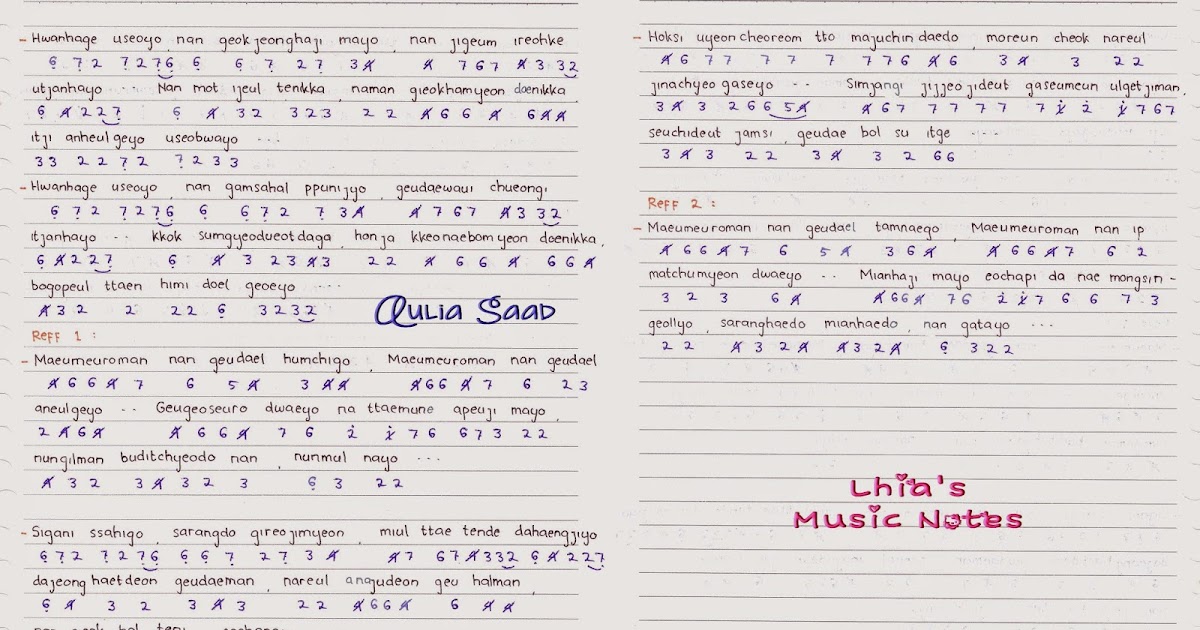 - Hwanhage useoyo, nan geokjeonghaji mayo, nan jigeum ireohke
6̣ 7̣ 2 7̣ 2 7̣ 6̣ 6̣ 6̣ 7̣ 2 7̣ 3 4̸ 4̸ 7 6 7 4̸ 3 3 2
utjanhayo ·· Nan mot ijeul tenikka, naman gieokhamyeon doenikka,
6̣ 4̸ 2 2 7̣ 6̣ 4̸ 3 2 3 2 3 2 2 4̸ 6 6 4̸ 6 4̸ 4̸
itji anheulgeyo useobwayo ···
3 3 2 2 7̣ 2 7̣ 2 3 3
- Hwanhage useoyo, nan gamsahal ppunijyo, geudaewaui chueongi
6̣ 7̣ 2 7̣ 2 7̣ 6̣ 6̣ 6̣ 7̣ 2 7̣ 3 4̸ 4̸ 7 6 7 4̸ 3 3 2
itjanhayo ·· kkok sumgyeodueotdaga, honja kkeonaebomyeon doenikka,
6̣ 4̸ 2 2 7̣ 6̣ 4̸ 3 2 3 4̸ 3 2 2 4̸ 6 6 4̸ 6 6 4̸
bogopeul ttaen himi doel geoeyo ···
4̸ 3 2 2 2 2 6̣ 3 2 3 2
Aulia Saad
Reff 1 :
- Maeumeuroman nan geudael humchigo, Maeumeuroman nan geudael
4̸ 6 6 4̸ 7 6 5 4̸ 3 4̸ 4̸ 4̸ 6 6 4̸ 7 6 2 3
aneulgeyo ·· Geugeoseuro dwaeyo na ttaemune apeuji mayo,
2 4̸ 6 4̸ 4̸ 6 6 4̸ 7 6 2̇ 1̸̇ 7 6 6 7 3 2 2
nungilman buditchyeodo nan, nunmul nayo ···
4̸ 3 2 3 4̸ 3 2 3 6̣ 3 2 2
- Sigani ssahigo, sarangdo gireojimyeon, miul ttae tende dahaengjiyo
6̣ 7̣ 2 7̣ 2 7̣ 6̣ 6̣ 6̣ 7̣ 2 7̣ 3 4̸ 4̸ 7 6 7 4̸ 3 3 2 6̣ 4̸ 2 2 7̣
dajeonghaetdeon geudaeman, nareul anajudeon geu halman,
6̣ 4̸ 3 2 3 4̸ 3 2 2 4̸ 6 6 4̸ 6 4̸ 4̸
- Hoksi uyeoncheoreom tto majuchin daedo, moreun cheok nareul
4̸ 6 7 7 7 7 7 7 7 6 4̸ 6 3 4̸ 3 2 2
jinachyeo gaseyo ·· Simjangi jijjeojideut gaseumeun ulgetjiman,
3 4̸ 3 2 6 6 5 4̸ 4̸ 6 7 7 7 7 7 7 1̸̇ 2̇ 1̸̇ 7 6 7
seuchideut jamsi, geudae bol su itge ····
3 4̸ 3 2 2 3 4̸ 3 2 6 6
Reff 2 :
- Maeumeuroman nan geudael tamnaego, Maeumeuroman nan ip
4̸ 6 6 4̸ 7 6 5 4̸ 3 6 4̸ 4̸ 6 6 4̸ 7 6 2
matchumyeon dwaeyo ·· Mianhaji mayo eochapi da nae mongsin -
3 2 3 6 4̸ 4̸ 6 6 4̸ 7 6 2̇ 1̸̇ 7 6 6 7 · 3
geollyo, saranghaedo mianhaedo, nan gatayo ···
2 2 4̸ 3 2 4̸ 4̸ 3 2 4̸ 6̣ 3 2 2
Lhia's
Music Notes